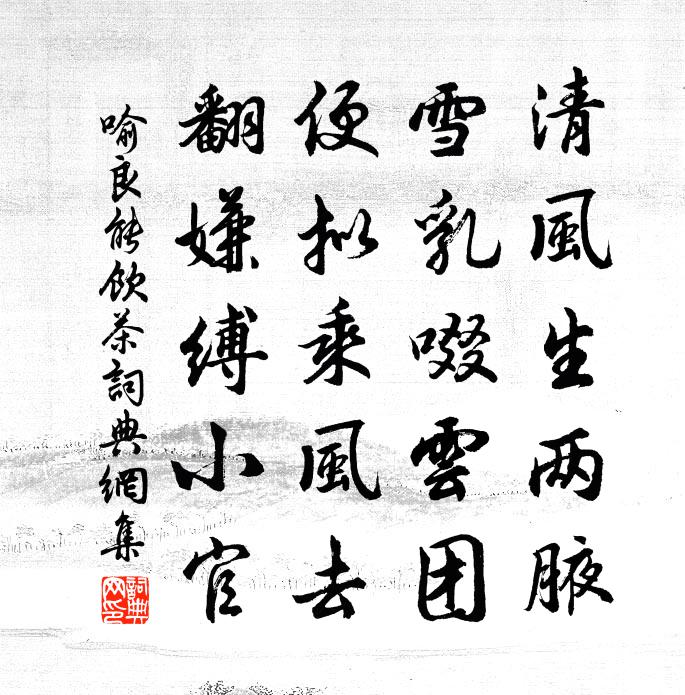 清風生两腋
雪乳啜雲团
便拟乘風去
翻嫌缚小官
喻良能飲茶詞典網集
詞典網印